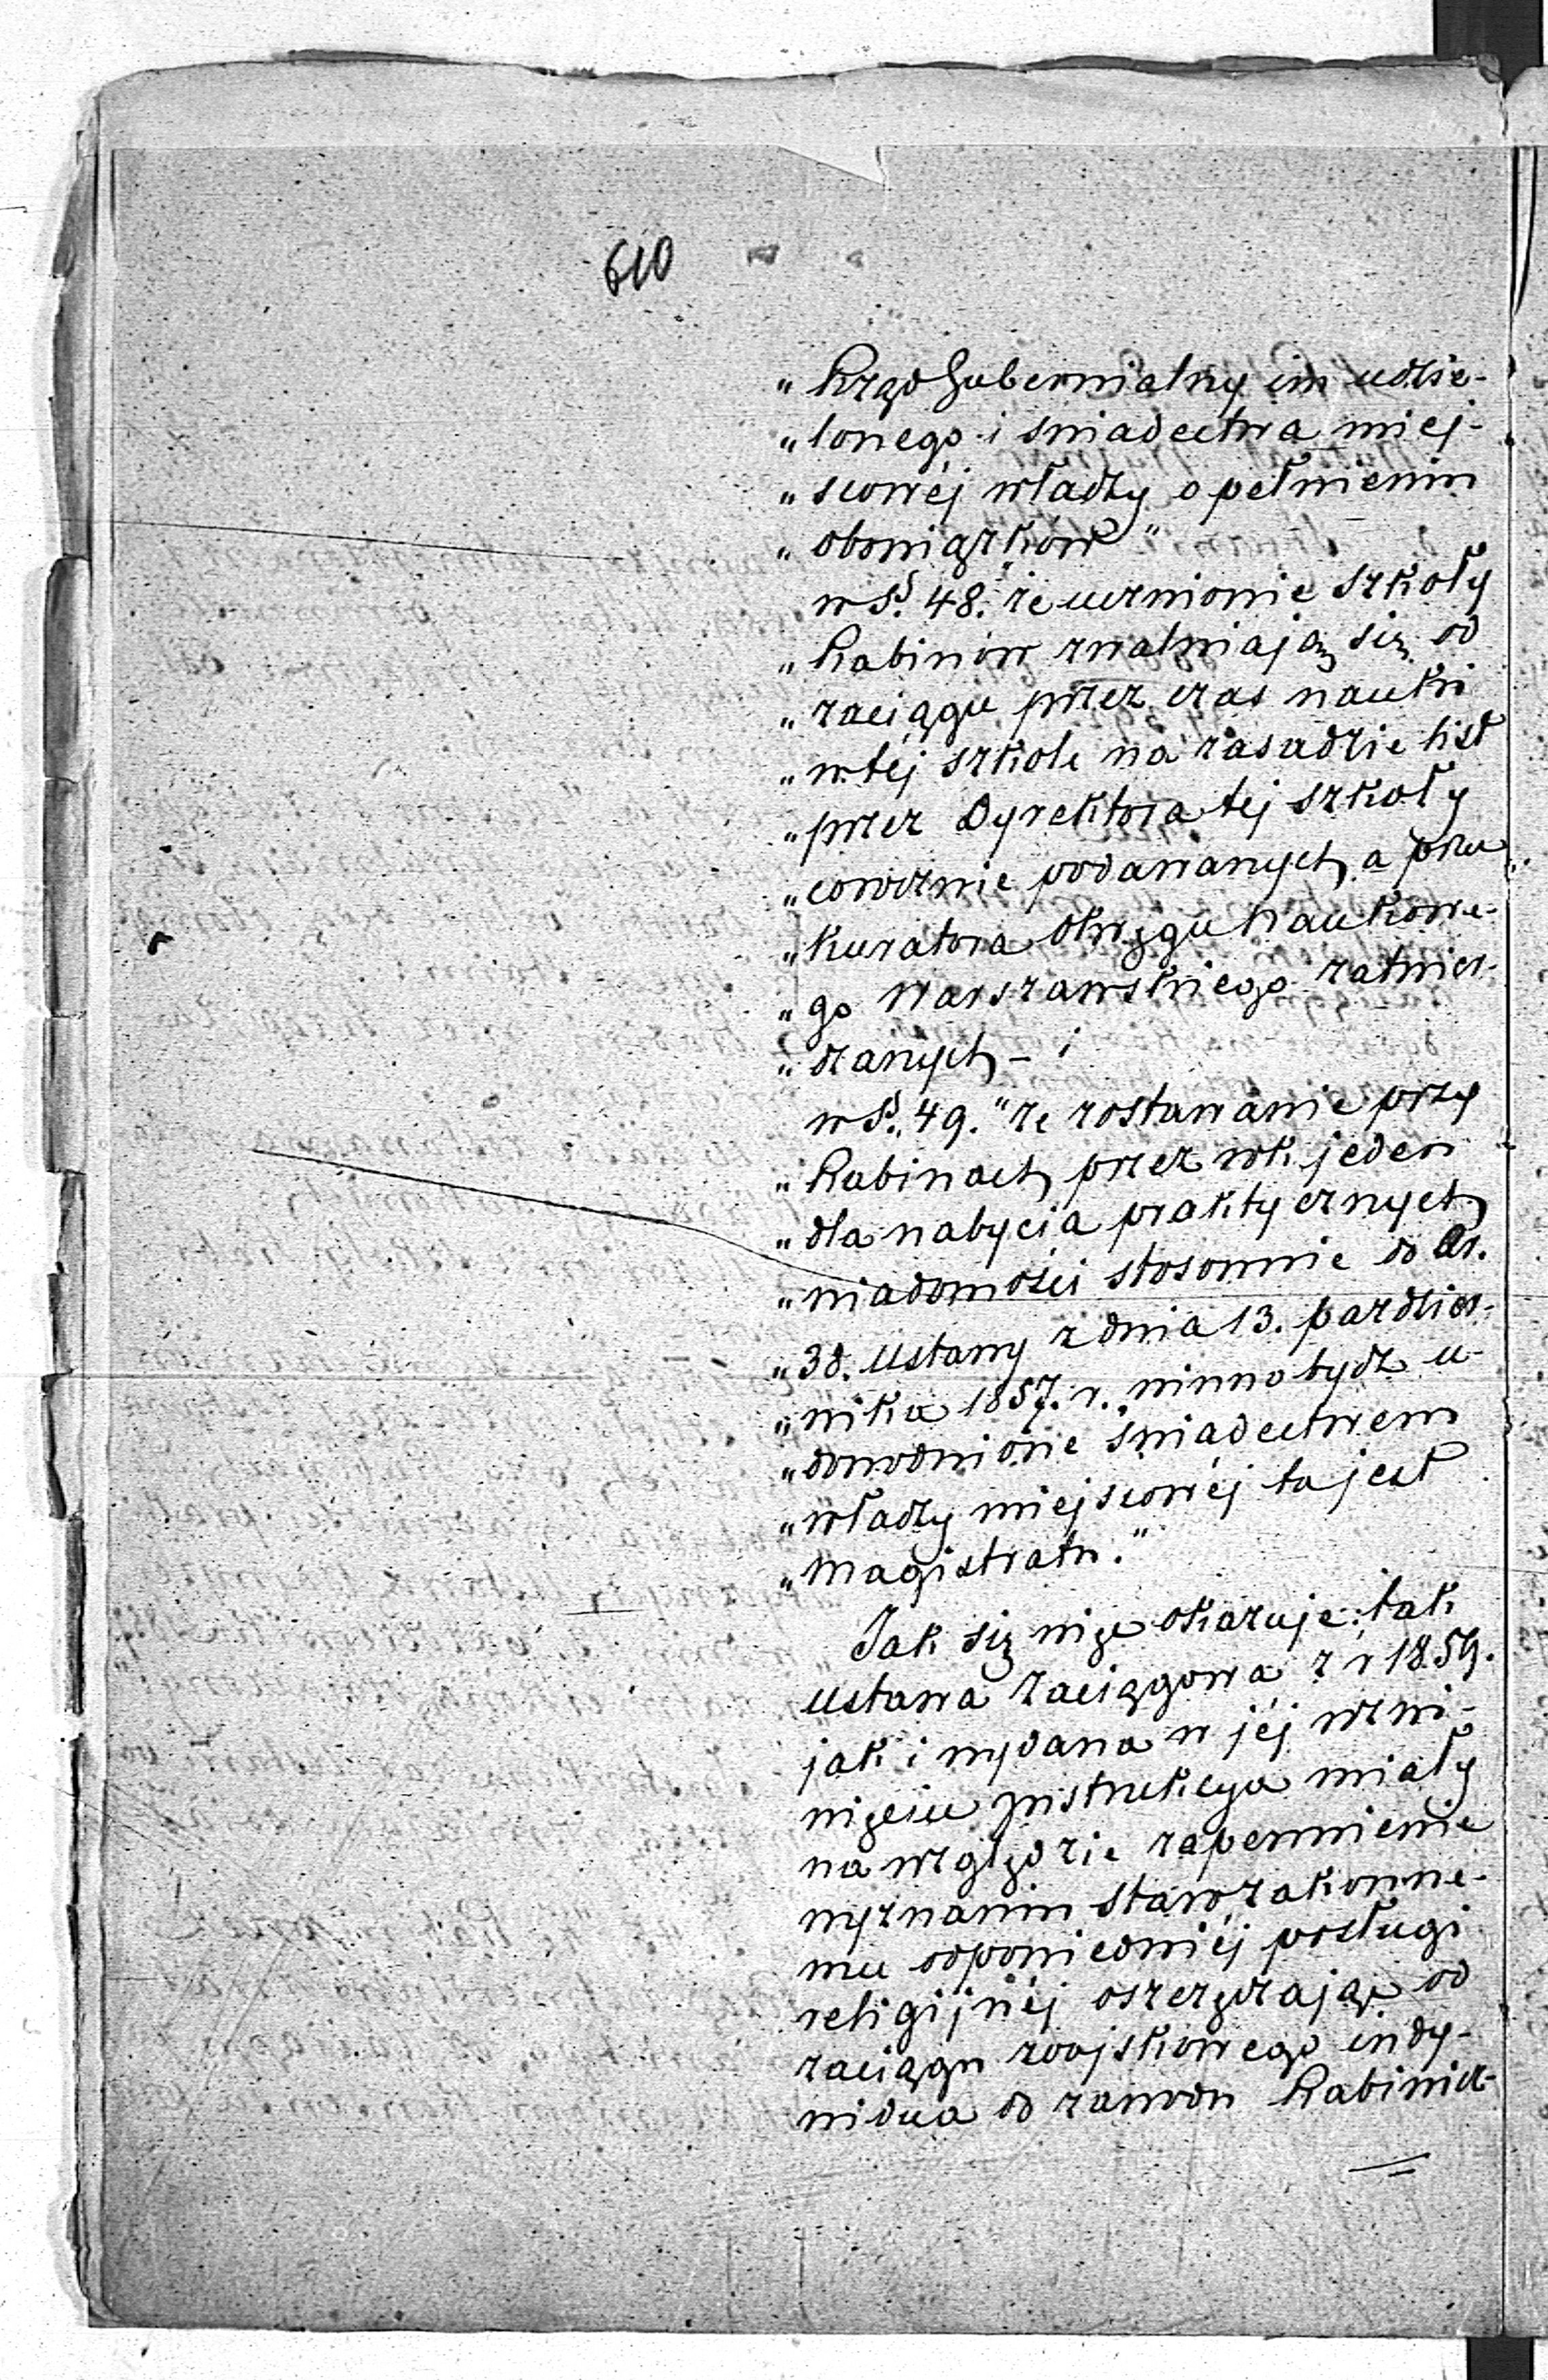 610
„Rząd Gubernialny im udzie-
„lonego i świadectwa miej-
„scowéj władzy o pełnieniu
„obowiązków”
w §. 48. „że uczniowie szkoły
„Rabinów zwalniają się od
„zaciągu przez czas nauki
„w téj szkole na zasadzie list
„przez Dyrektora téj szkoły
„corocznie podawanych, a przez
„Kuratora Okręgu Naukowe-
„go Warszawskiego zatwier-
„dzanych – i
w §. 49. „że zostawanie przy
„Rabinach przez rok jeden
„dla nabycia praktycznych
„wiadomości stosownie do Ar.
„38. Ustawy z dnia 13. paździer-
„nika 1857. r. winno bydź u-
„dowodnione świadectwem
„władzy miejscowéj to jest
„Magistratu.”
Jak się więc okazuje: tak
Ustawa zaciągowa z r 1859.
jak i wydana w jéj rozwi-
nięciu Instrukcya miały
na względzie zapewnienie
wyznaniu starozakonne-
mu odpowiedniéj posługi
religijnéj oszczędzając od
zaciągu wojskowego indy-
widua do zawodu Rabinicz-